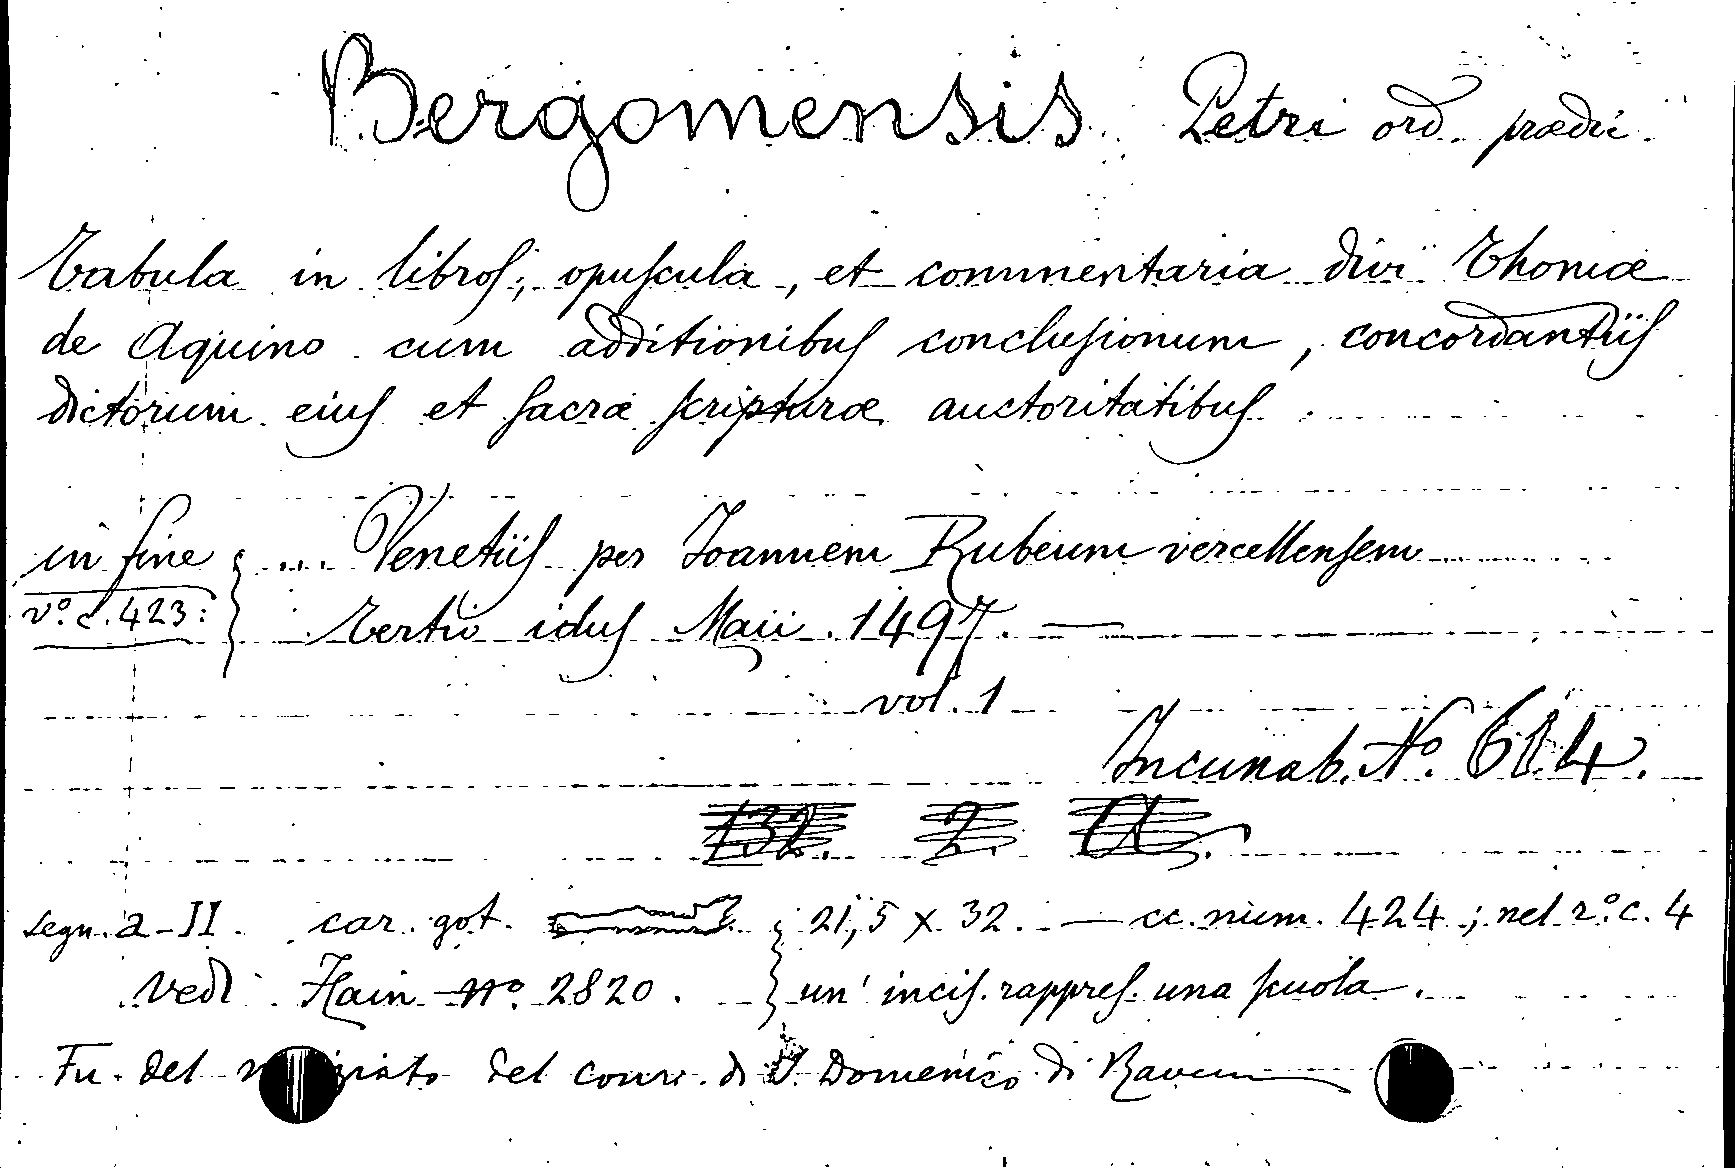 Bergomensis Petri ord. prædic.
Tabula in libros, opuscula, et commentaria divi Thomæ
de Aquino cum additionibus conclusionum, concordantiis
dictorum eius et sacræ scripturæ auctoritatibus
in fine ... Venetiis per Joannem Rubeum vercellensem
vº. c. 423: tertio idus Maii 1497. —
vol. 1
Incunab. Nº. 614.
132. 2.
segn. a-II. car. got. 21,5 x 32. — cc. num. 424; nel rº. c. 4
vedi Hain nº. 2820. un' incis. rappres. una scuola.
Fu del del conv. di S. Domenico di